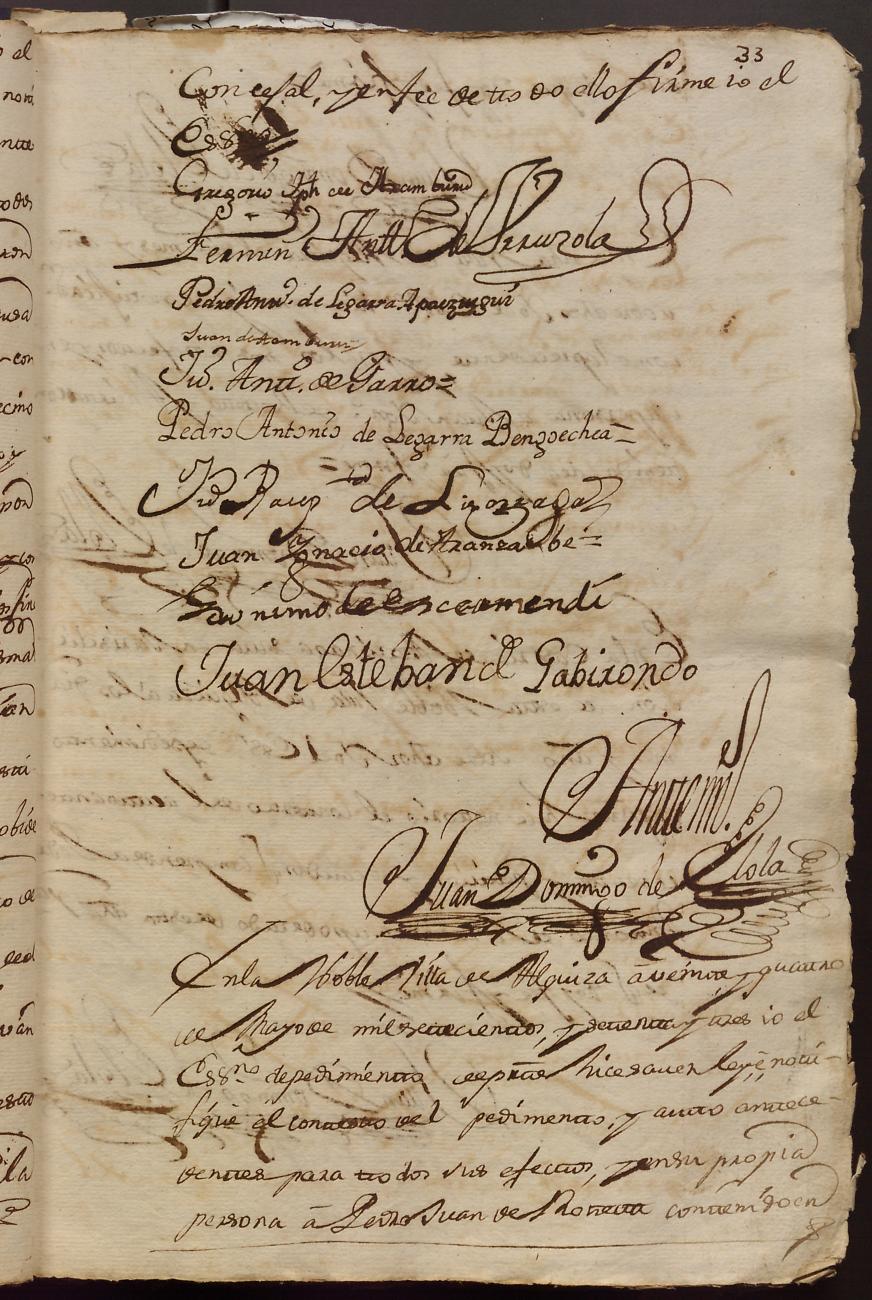 33
Concejal, y en fee de ttodo ello firme io el
Essno
Gregorio Jph de Aramburu
Fermin Antto de Yrruzola
Pedro Antto. de Legarra Apaezegui
Juan de Aramburu
Ju°. Antt°. de Garro=
Pedro Antonio de Legarra Bengoechea=
Ju° Raup de Lizorzaga
Juan Ygnacio de Aranzalbe=
Gerónimo de Leiceamendi
Juan Esteban de Gabirondo
Antte mi.
Juan Domingo de Elola
En la Noble Villa de Alquiza a veintte, y quattro
de Mayo de mil settecienttos, y settentta y tres io el
Essno de pedimientto de partte hice saver ley, é notti-
fiqué el conttexto del pedimentto, y autto antteze-
denttes para ttodos sus efecttos, y en su propia
persona á Pedro Juan de Ronetta conttenido en